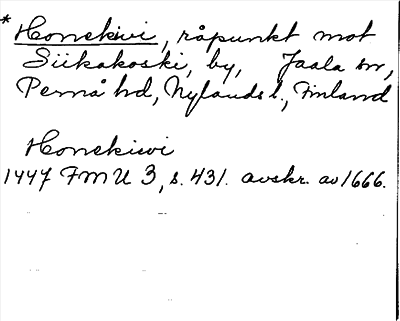 * Honekivi, råpunkt mot
Siikakoski, by, Jaala sn,
Pernå hd, Nylands l., Finland
Honekiwi
1447 FMU 3, s. 431. avskr. av 1666.